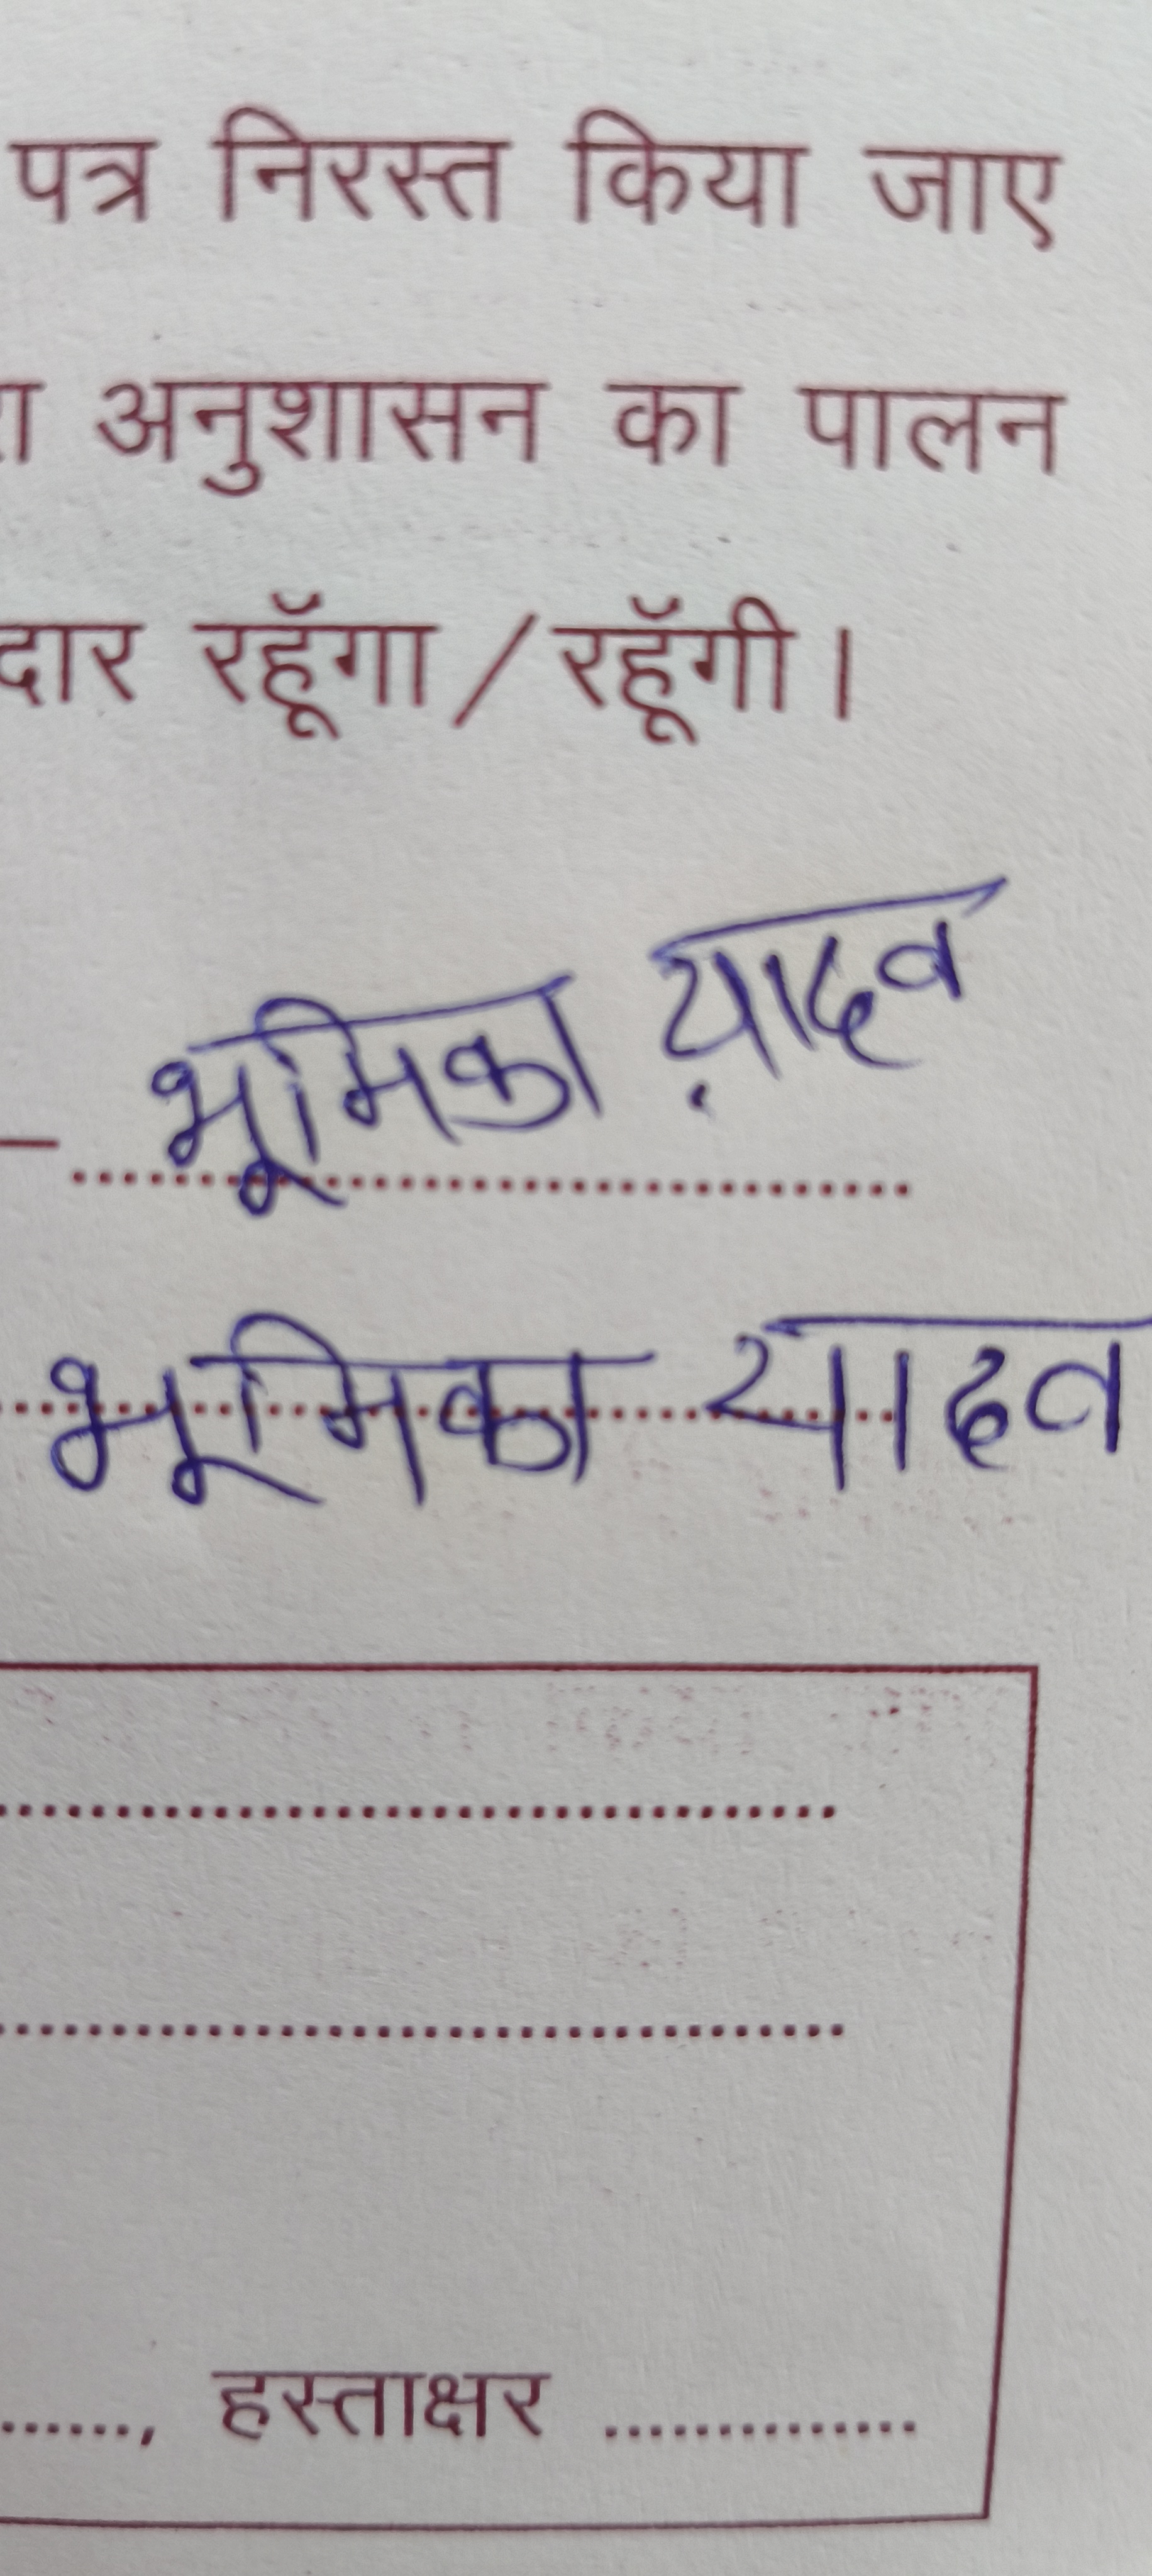 पत्र निरस्त किया जाए
अनुशासन का पालन
दार रहूॅंगा / रहूॅंगी।
भूमिका य़ादव
भूमिका यादव
हस्ताक्षर